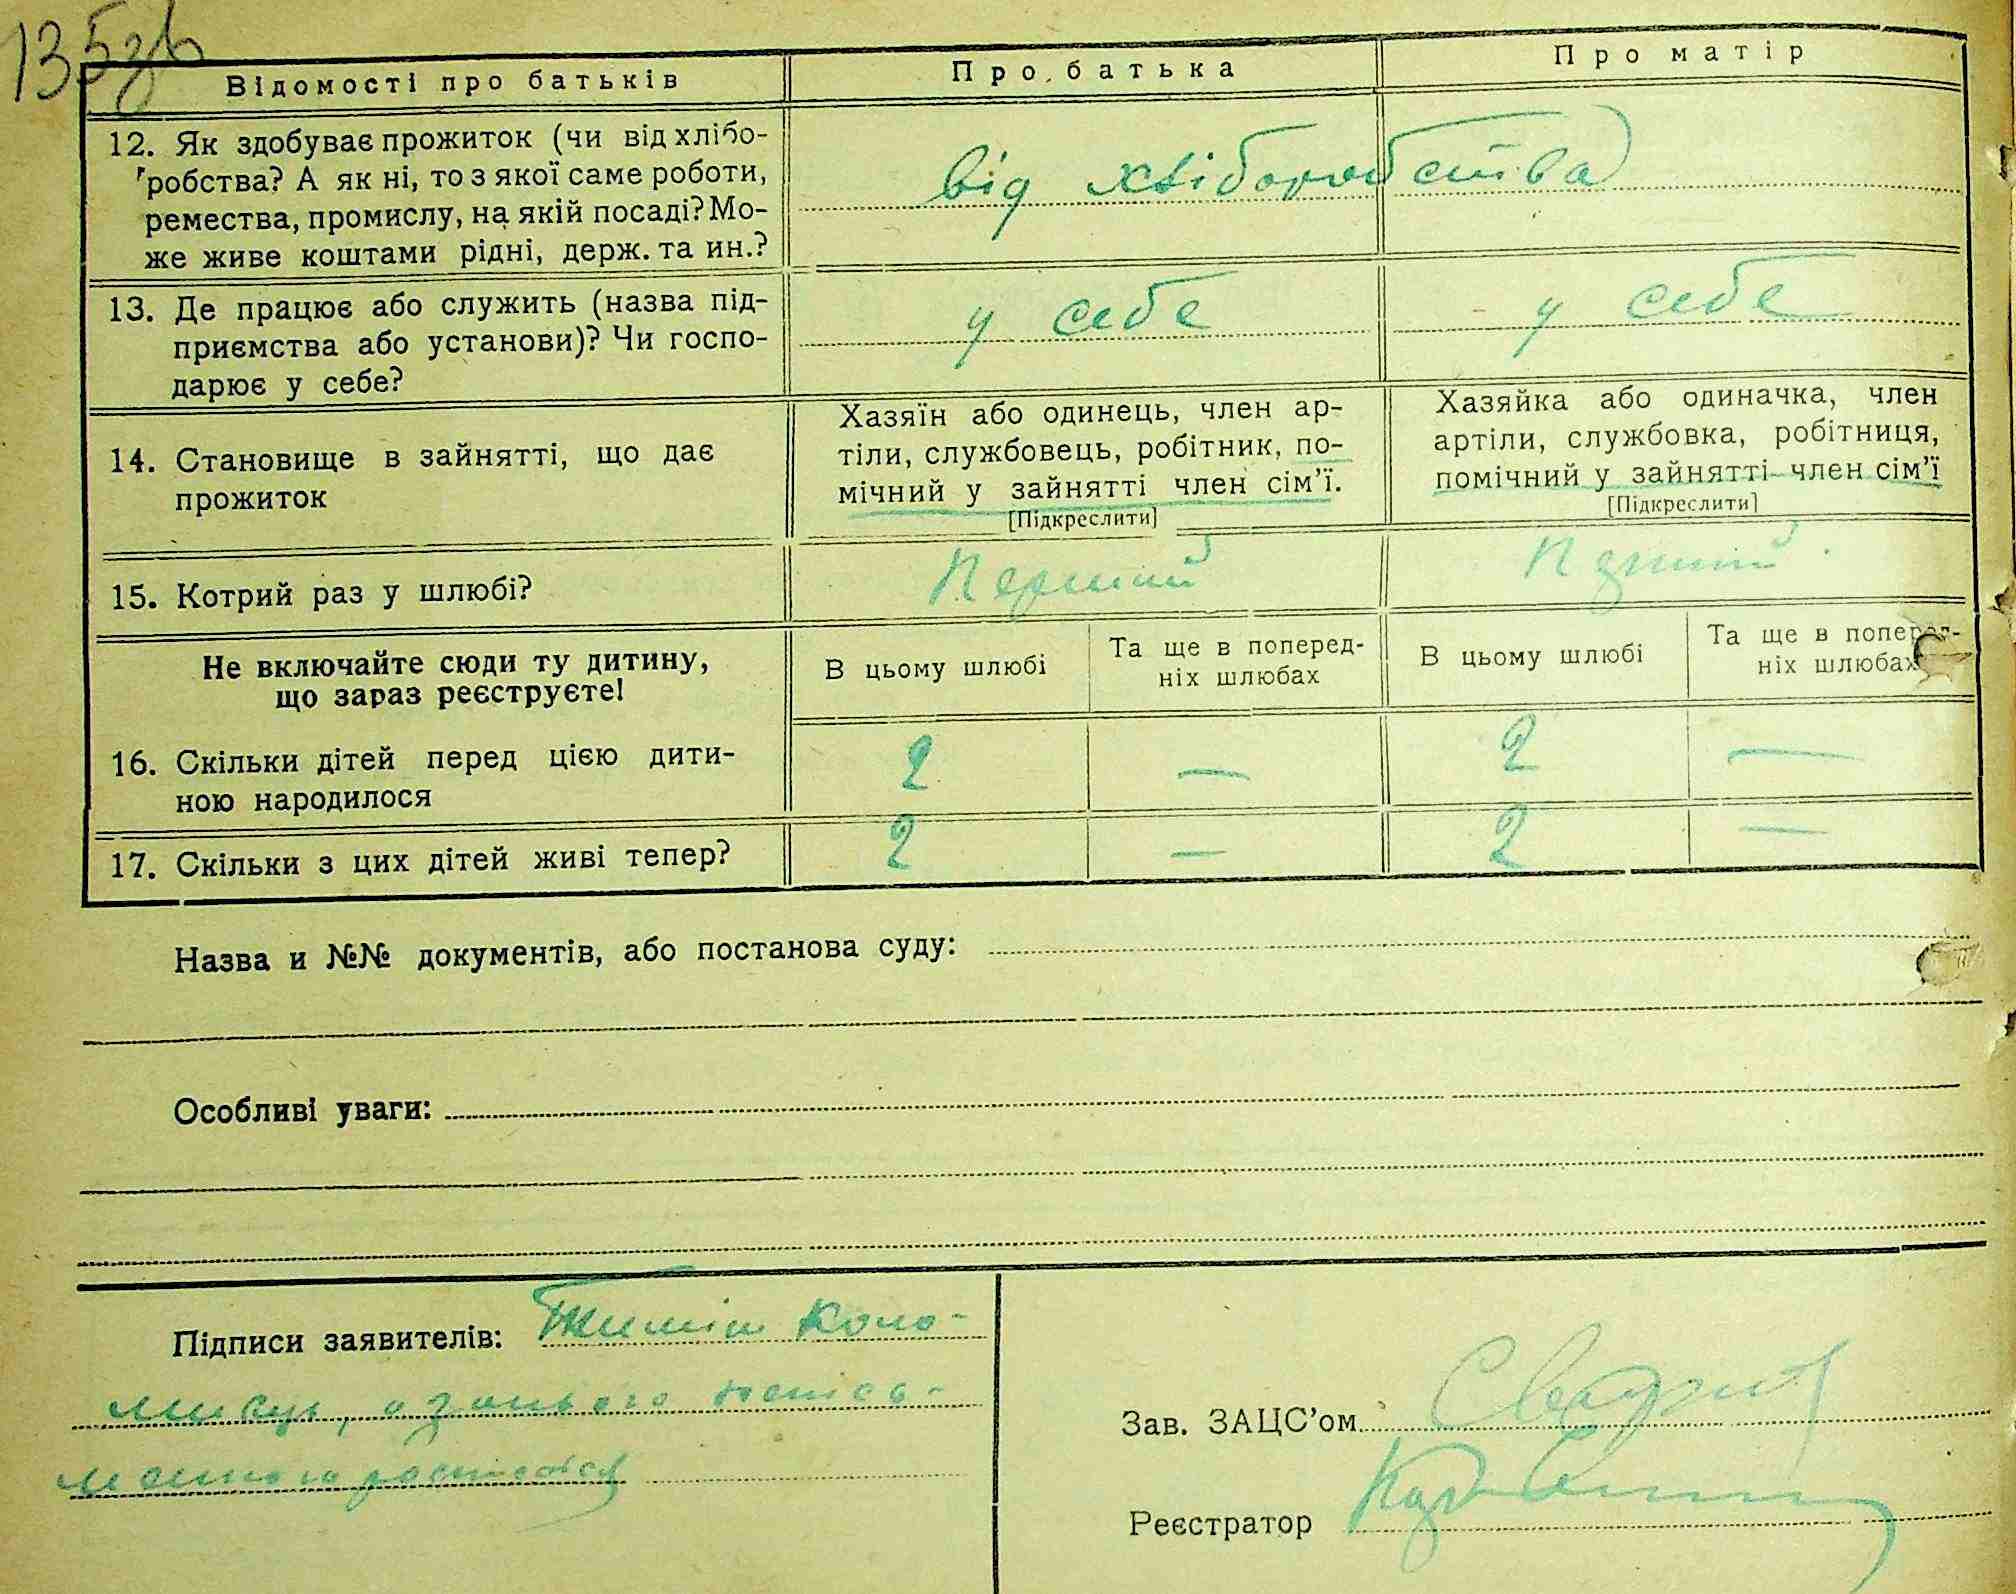 135зв
Відомості про батьків
Про батька
Про матір
12. Як здобуває прожиток (чи від хлібо-
робства? А як ні, то з якої саме роботи,
ремества, промислу, на якій посаді? Мо-
же живе коштами рідні, держ. та ин.?
від хліборобства
13. Де працює або служить (назва під-
приємства або установи)? Чи госпо-
дарює у себе?
у себе
у себе
14. Становище в зайнятті, що дає
прожиток
Хазяїн або одинець, член ар-
тіли, службовець, робітник, по-
мічний у зайнятті член сім’ї.
[Підкреслити]
Хазяйка або одиначка, член
артіли, службовка, робітниця,
помічний у зайнятті член сім’ї
[Підкреслити]
15. Котрий раз у шлюбі?
Перший
Не включайте сюди ту дитину,
що зараз реєструєте!
В цьому шлюбі
Та ще в поперед-
ніх шлюбах
В цьому шлюбі
Та ще в поперед-
ніх шлюбах
16. Скільки дітей перед цією дити-
ною народилося
2 — 2 —
17. Скільки з цих дітей живі тепер?
2 — 2 —
Назва и №№ документів, або постанова суду:
Особливі уваги:
Підписи заявителів:
Коло-
Зав. ЗАЦС’ом
Реєстратор